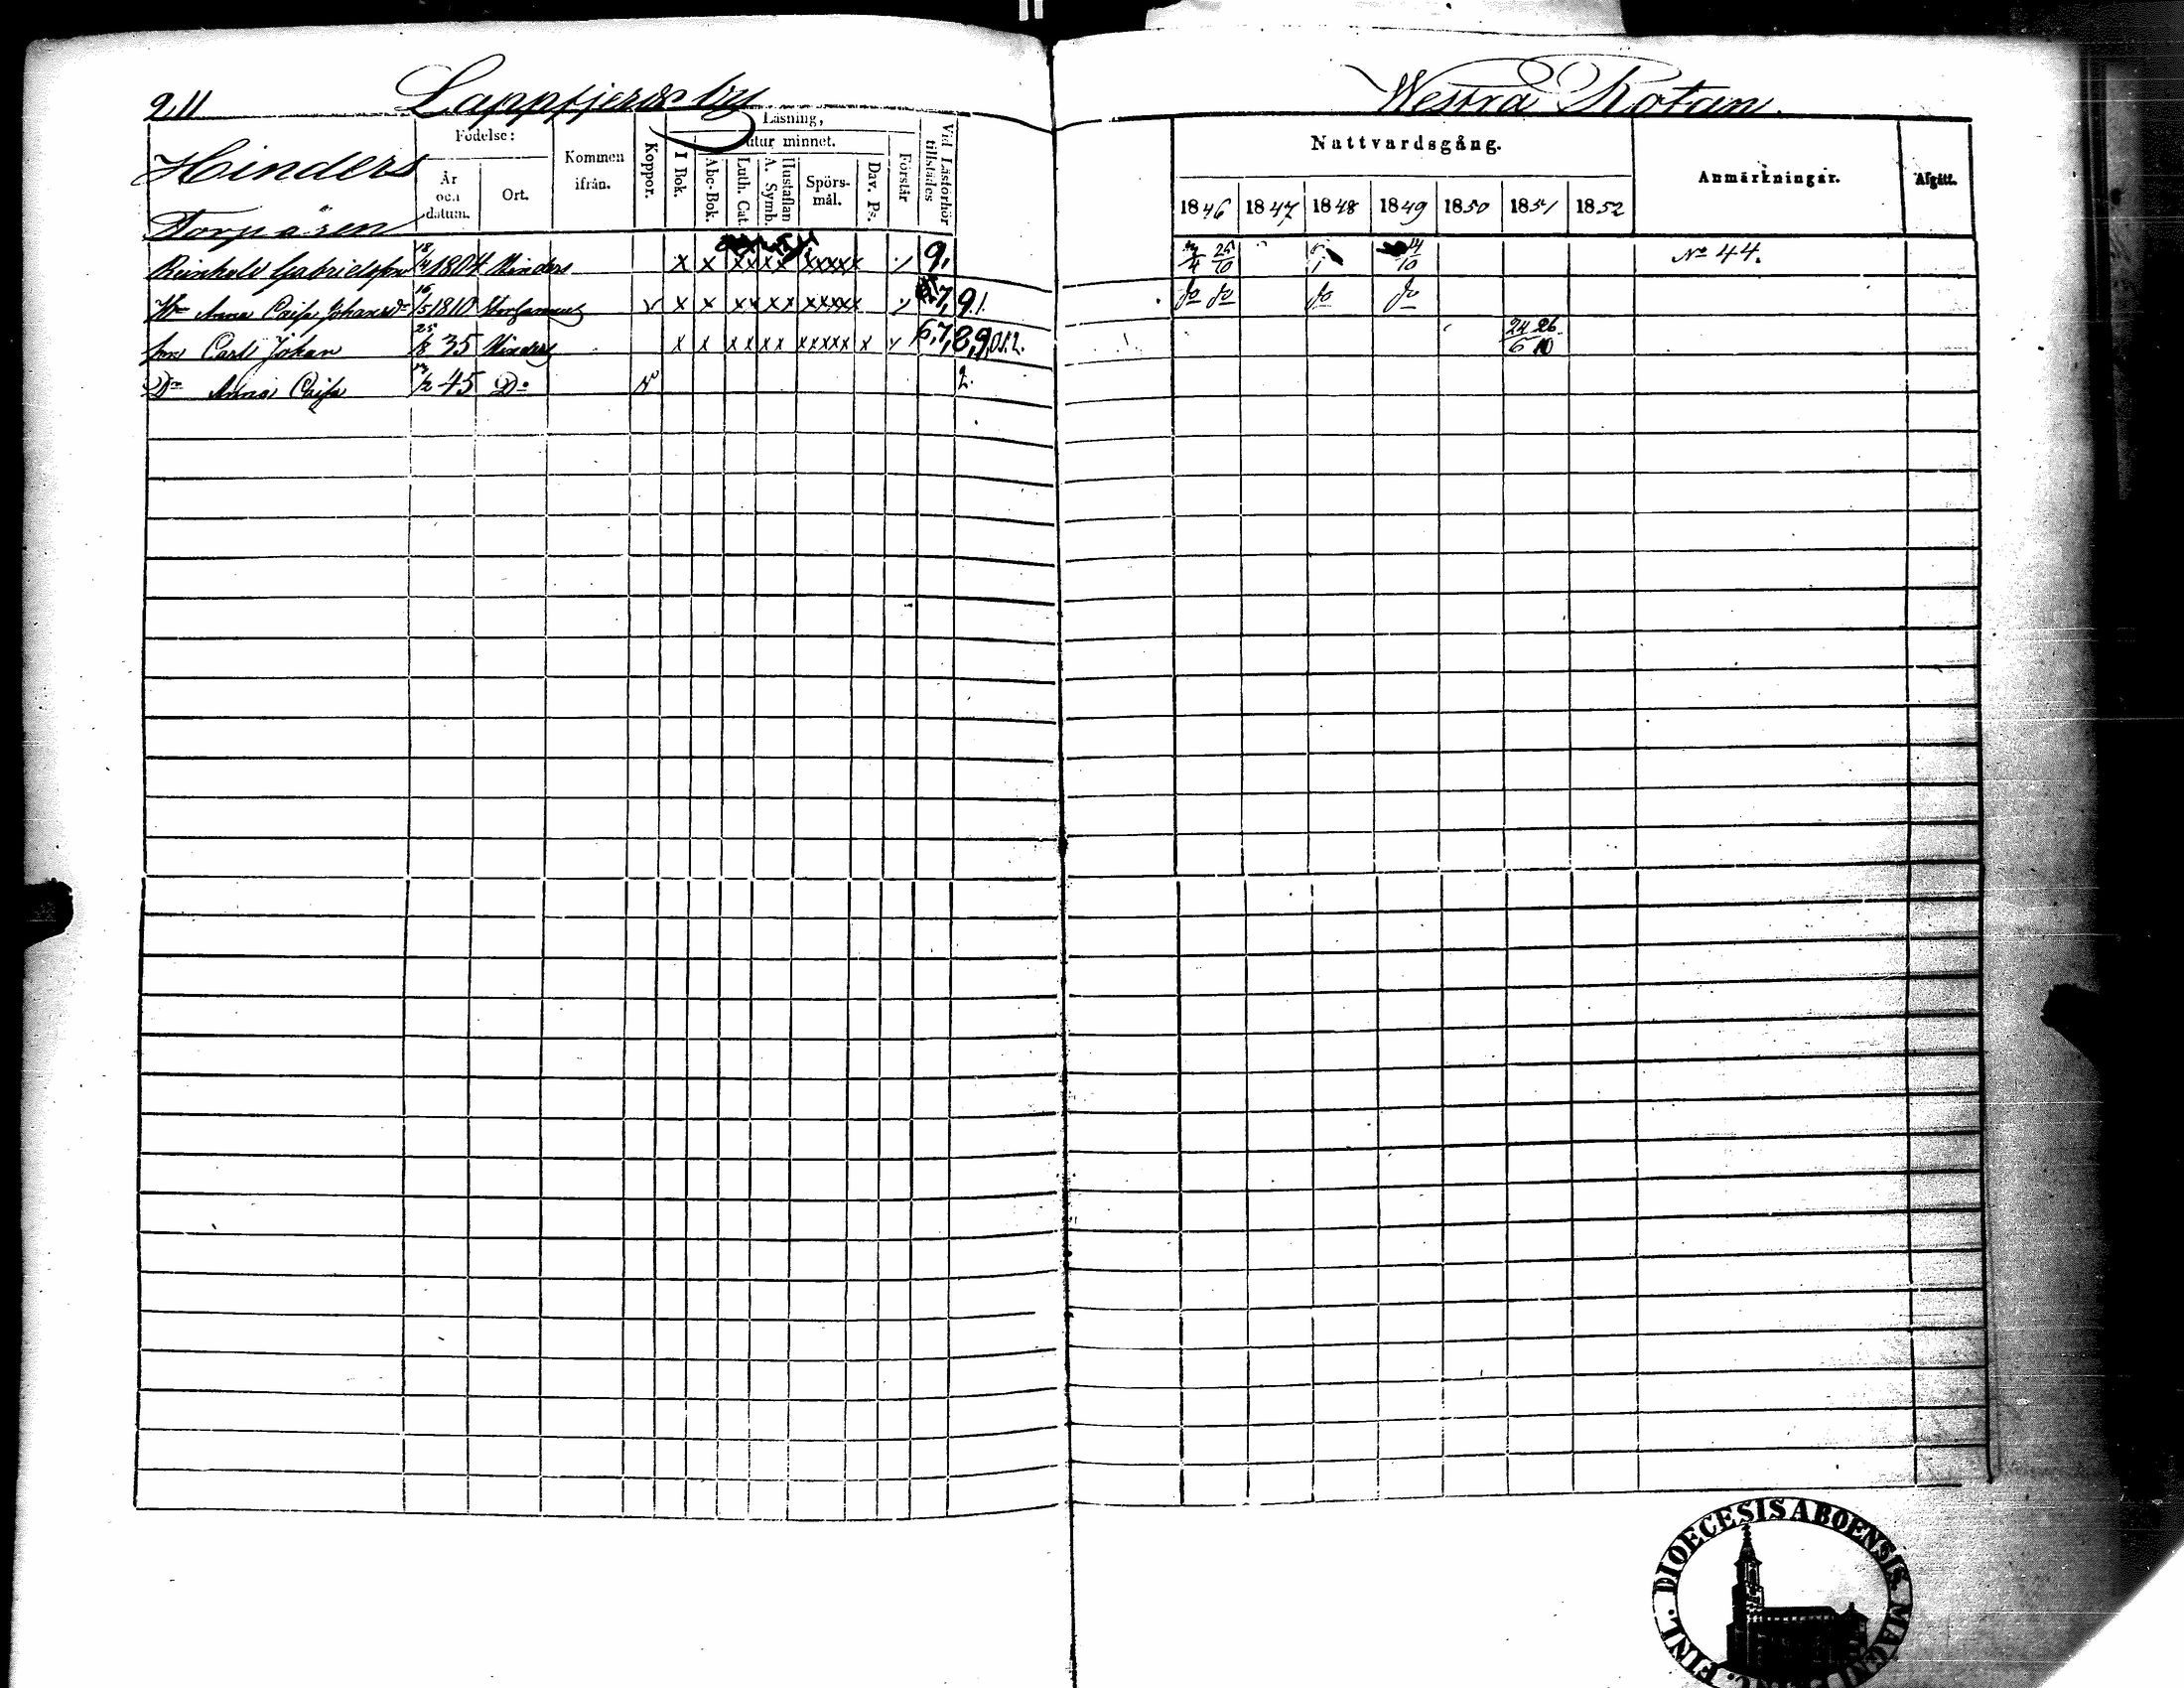 211 Lappfjerds by Westra Rotan.
Hinders
Torpåren
Födelse:
År och datum.
Ort.
Kommen ifrån.
Koppor.
Läsning,
utur minnet.
I Bok.
Abc-Bok.
Luth. Cat.
A. Symb.
Hustaflan
Spörsmål.
Dav. Ps.
Förstår
Vid Läsförhör tillstädes
Nattvardsgång.
1846 1847 1848 1849 1850 1851 1852
Anmärkningar.
Afgått.
Reinhold Gabrielsson 18/4 1804 Hinders x x xx xx xxxxx 9, 25/10 14/10 No 44.
Hu Anna Caisa Johansdr 16/5 1810 v x x xx xx xxxxx 7, 9.1. do do do do
son Carl Johan 25/8 35 Hinders x x xx xx xxxxx x 6,7,8,9,0.1.2. 24/6 26/10
Dr Anna Caisa /2 45 Do v 2.
DIOECESIS ABOENSIS MAGNI FINL.